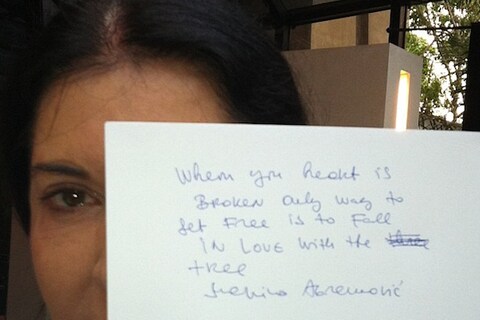 When you heart is
BROKEN only way to
get Free is to Fall
IN LOVE with the
tree
Marina Abramović